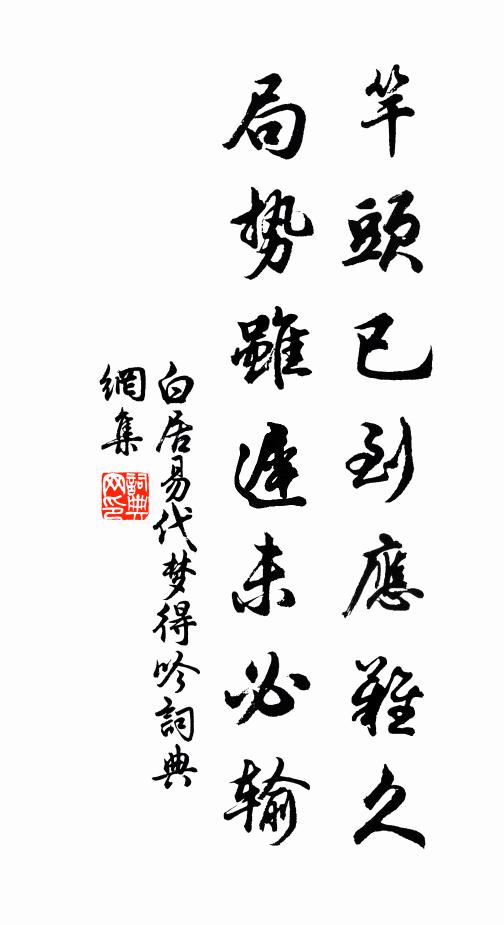 竿頭已到應難久
局勢雖遲未必输
白居易代梦得吟詞典
網集
詞典
网印